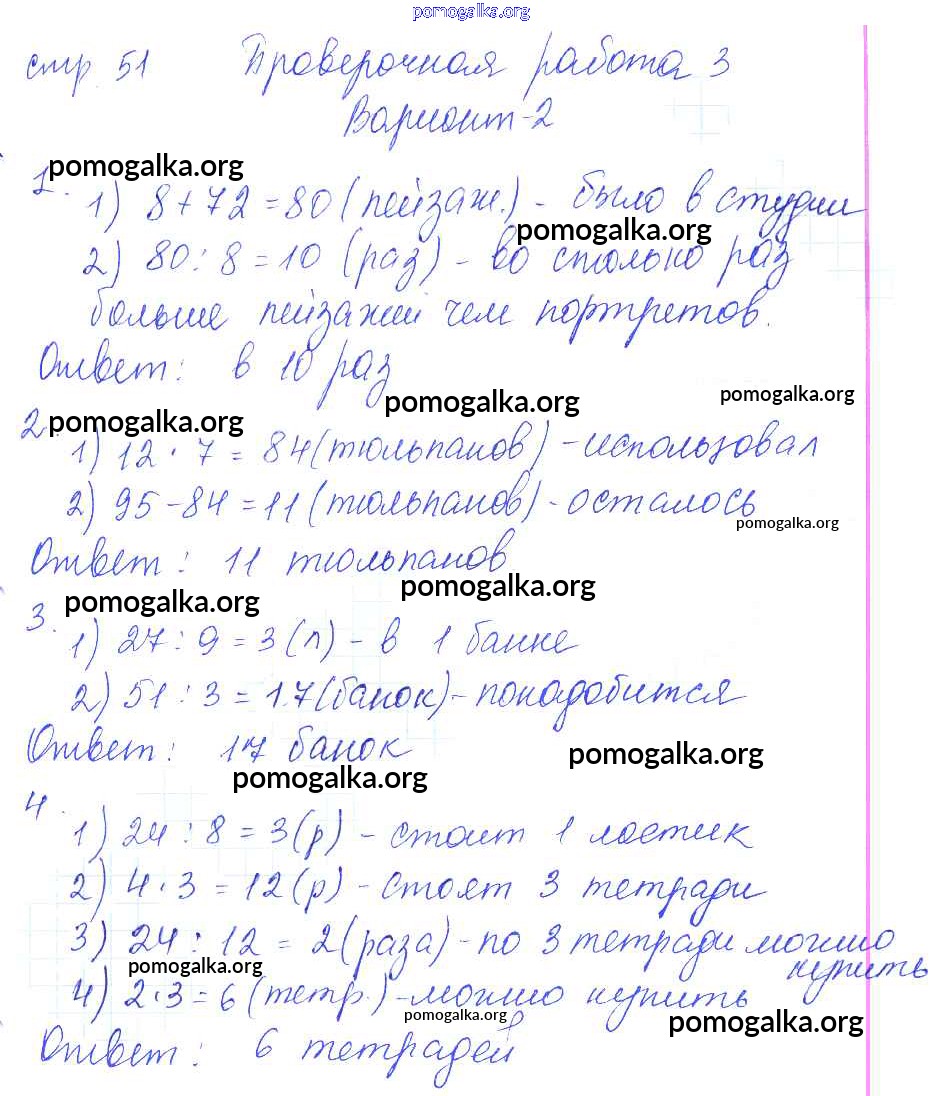 pomogalka.org
стр. 51 Проверочная работа 3
Вариант-2
pomogalka.org
1. 1) 8+72=80 (пейзаж.) - было в студии
pomogalka.org
2) 80:8=10 (раз) - во столько раз
больше пейзажей чем портретов.
Ответ: в 10 раз
pomogalka.org pomogalka.org
pomogalka.org
2. 1) 12·7=84(тюльпанов)-использовал
2) 95-84=11(тюльпанов)-осталось
pomogalka.org
Ответ: 11 тюльпанов
pomogalka.org
pomogalka.org
3. 1) 27:9=3(л)-в 1 банке
2) 51:3=17(банок)-понадобится
Ответ: 17 банок
pomogalka.org
pomogalka.org
4. 1) 24:8=3(р)-стоит 1 ластик
2) 4·3=12(р)-стоят 3 тетради
3) 24:12=2(раза)-по 3 тетради можно
купить
pomogalka.org
4) 2·3=6(тетр.)-можно купить
pomogalka.org
pomogalka.org
Ответ: 6 тетрадей